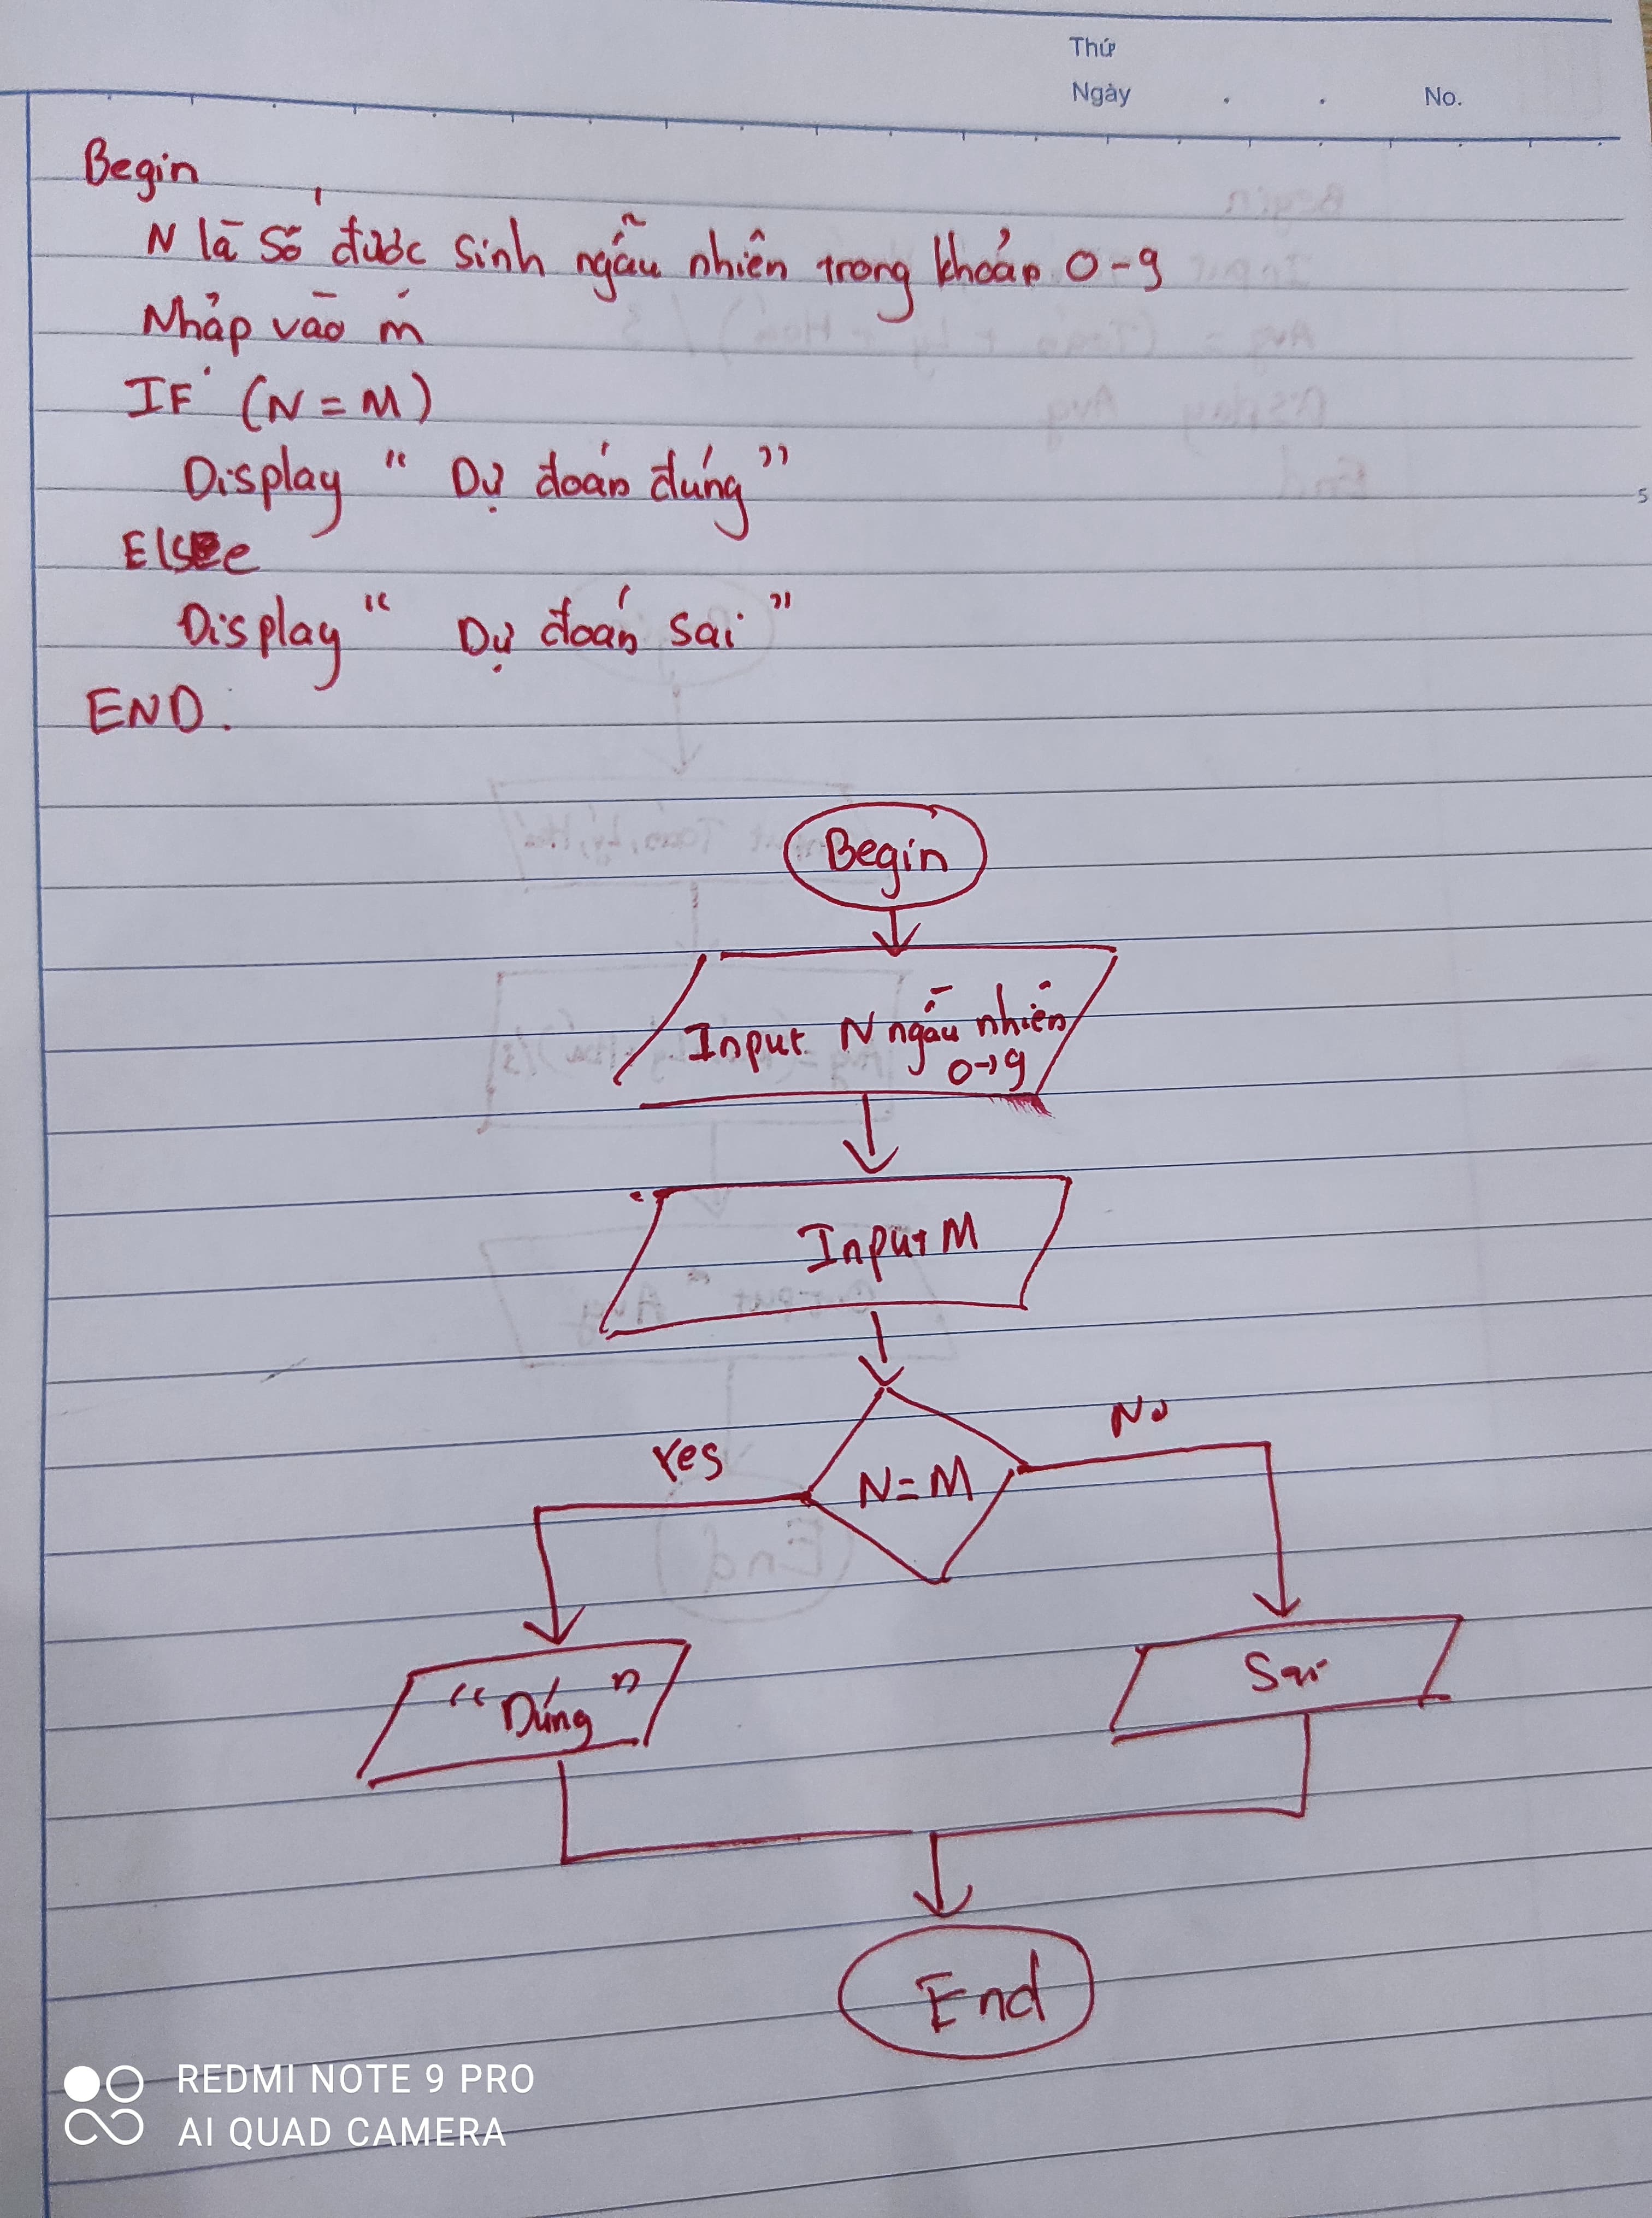 Thứ
Ngày . . No.
Begin
N là số được sinh ngẫu nhiên trong khoảp 0-9
Nhập vào m
IF (N = M)
Display " Dự đoán đúng "
Else
Display " Dự đoán sai "
END.
5
Begin
Input N ngẫu nhiên
0→9
Input M
N=M
Yes
No
" Đúng "
Sai
End
REDMI NOTE 9 PRO
AI QUAD CAMERA